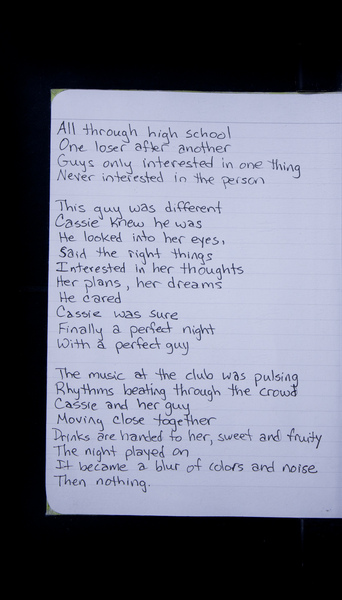 All through high school
One loser after another
Guys only interested in one thing
Never interested in the person
This guy was different
Cassie knew he was
He looked into her eyes,
Said the right things
Interested in her thoughts
Her plans, her dreams
He cared
Cassie was sure
Finally a perfect night
With a perfect guy
The music at the club was pulsing
Rhythms beating through the crowd
Cassie and her guy
Moving close together
Drinks are handed to her, sweet and fruity
The night played on
It became a blur of colors and noise
Then nothing.